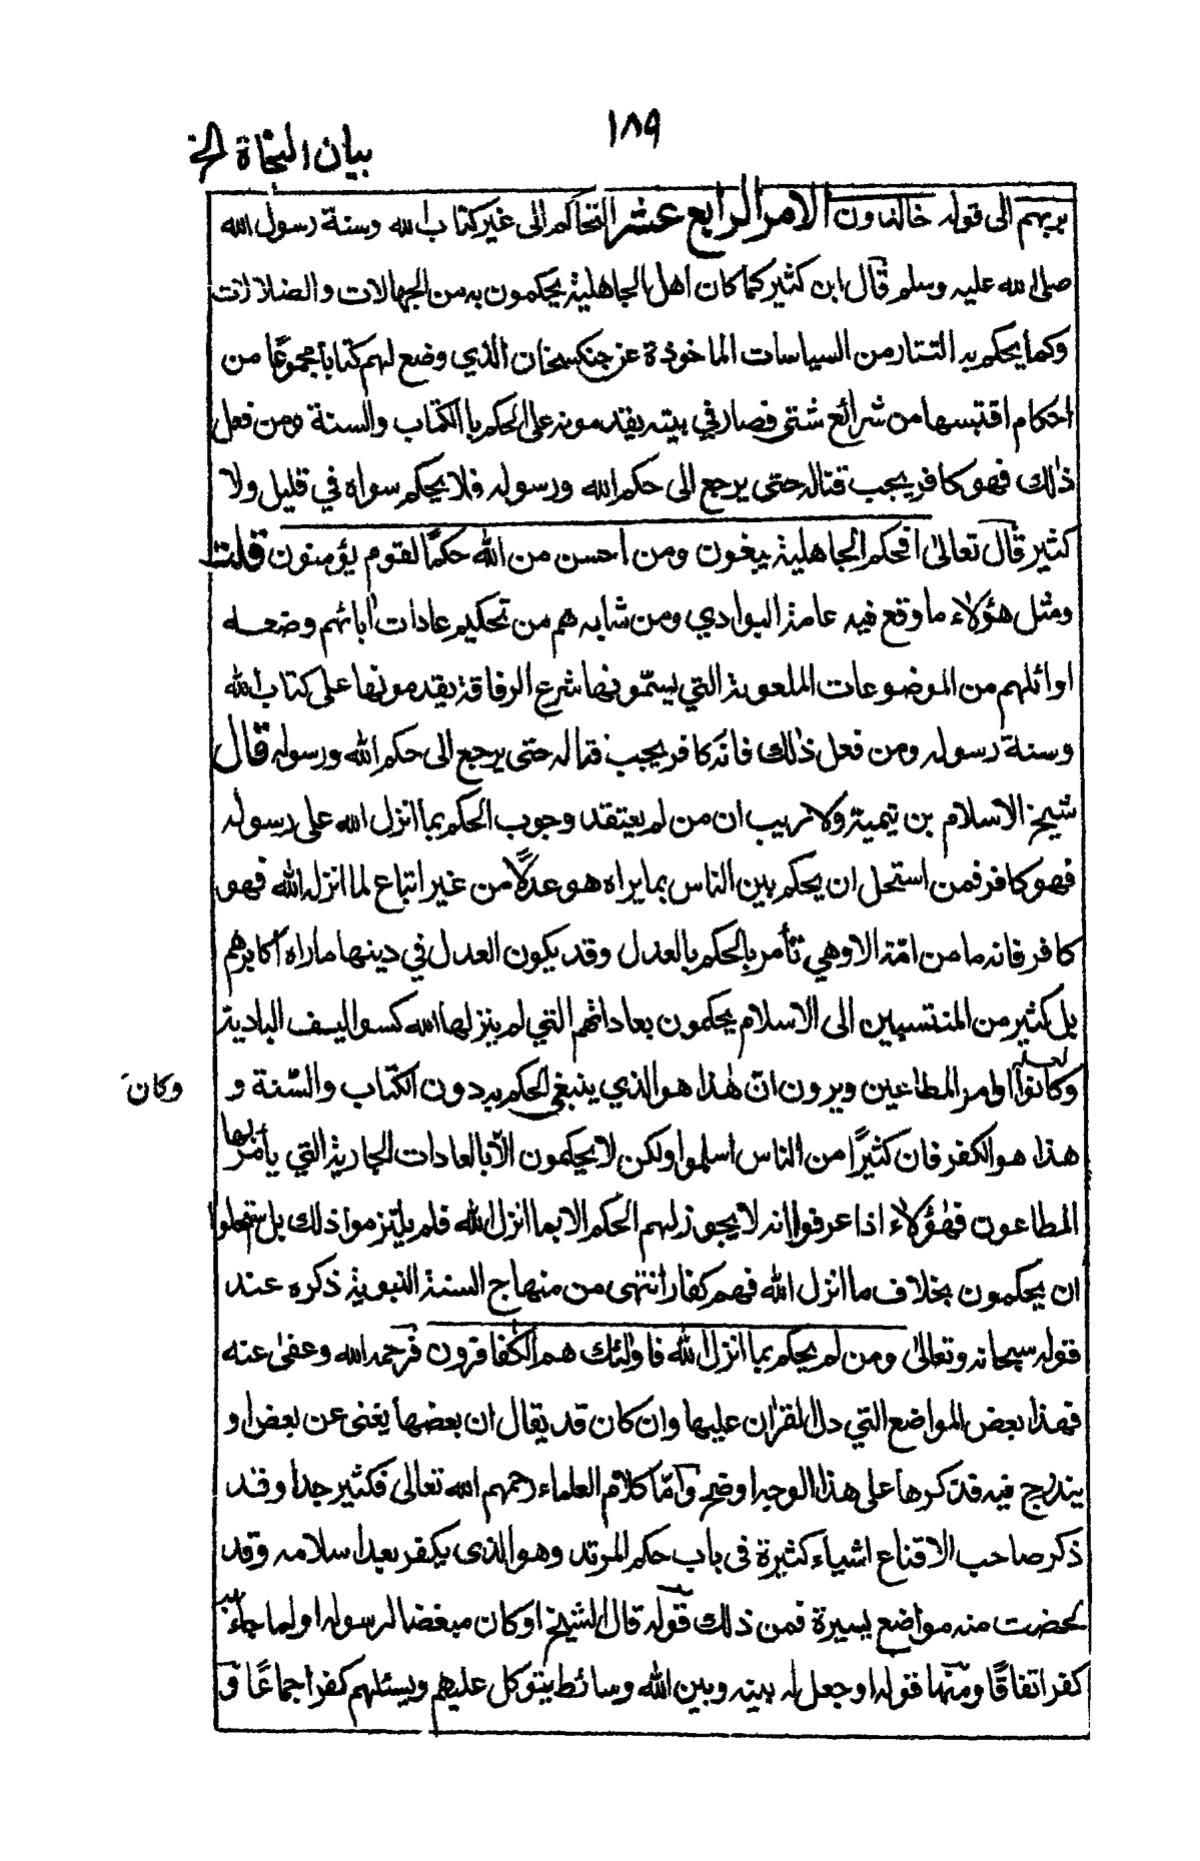 ١٨٩
بيان النجاة الخ
بربهم الى قوله خالدون الامر الرابع عشر التحاكم الى غير كتاب الله وسنة رسول الله
صلى الله عليه وسلم قال ابن كثير كما كان اهل الجاهلية يحكمون به من الجهالات والضلالات
وكما يحكم به التتار من السياسات الماخوذة عن جنكسخان الذي وضع لهم كتابا مجموعًا من
احكام اقتبسها من شرائع شتى فصار في بيته يقدمونه على الحكم بالكتاب والسنة ومن فعل
ذلك فهو كافر يجب قتاله حتى يرجع الى حكم الله ورسوله فلا يحكم سواه في قليل ولا
كثير قال تعالى افحكم الجاهلية يبغون ومن احسن من الله حكمًا لقوم يؤمنون قلت
ومثل هؤلاء ما وقع فيه عامة البوادي ومن شابههم من تحكيم عادات آبائهم وضعه
اوائلهم من الموضوعات الملعونة التي يسمّونها شرع الرفاقة يقدمونها على كتاب الله
وسنة رسوله ومن فعل ذلك فانه كافر يجب قتاله حتى يرجع الى حكم الله ورسوله قال
شيخ الاسلام بن تيمية ولا ريب ان من لم يعتقد وجوب الحكم بما انزل الله على رسوله
فهو كافر فمن استحل ان يحكم بين الناس بما يراه هو عدلًا من غير اتباع لما انزل الله فهو
كافر فانه ما من امّة الا وهي تأمر بالحكم بالعدل وقد يكون العدل في دينها ما راه اكابرهم
بل كثير من المنتسبين الى الاسلام يحكمون بعاداتهم التي لم ينزلها الله كسواليف البادية
وكانوا اوامر المطاعين ويرون انّ هذا هو الذي ينبغي الحكم به دون الكتاب والسّنة و
وكان
هذا هو الكفر فان كثيرًا من الناس اسلموا ولكن لا يحكمون الّا بالعادات الجارية التي يأمر بها
المطاعون فهؤلاء اذا عرفوا انه لا يجوز لهم الحكم الا بما انزل الله فلم يلتزموا ذلك بل استحلوا
ان يحكمون بخلاف ما انزل الله فهم كفار انتهى من منهاج السنة النبوية ذكره عند
قوله سبحانه وتعالى ومن لم يحكم بما انزل الله فاولئك هم الكافرون فرحمه الله وعفى عنه
فهذا بعض المواضع التي دل القران عليها وان كان قد يقال ان بعضها يغنى عن بعض او
يندرج فيه فذكرها على هذا الوجه اوضح وامّا كلام العلماء رحمهم الله تعالى فكثير جدا وقد
ذكر صاحب الاقناع اشياء كثيرة في باب حكم المرتد وهو الذي يكفر بعد اسلامه وقد
لخصت منه مواضع يسيرة فمن ذلك قوله قال الشيخ او كان مبغضا لرسوله او لما جاء به
كفر اتفاقًا ومنها قوله او جعل له بينه وبين الله وسائط يتوكل عليهم ويسئلهم كفر اجماعًا و